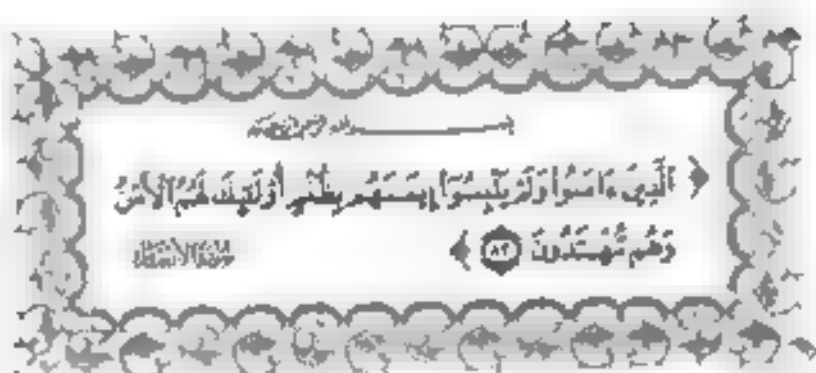 بسم الله الرحمن الرحيم
﴿ الَّذِينَ ءَامَنُوا وَلَمْ يَلْبِسُوٓا إِيمَـٰنَهُم بِظُلْمٍ أُو۟لَـٰٓئِكَ لَهُمُ الْأَمْنُ
وَهُم مُّهْتَدُونَ ٨٢ ﴾
سورة الأنعام